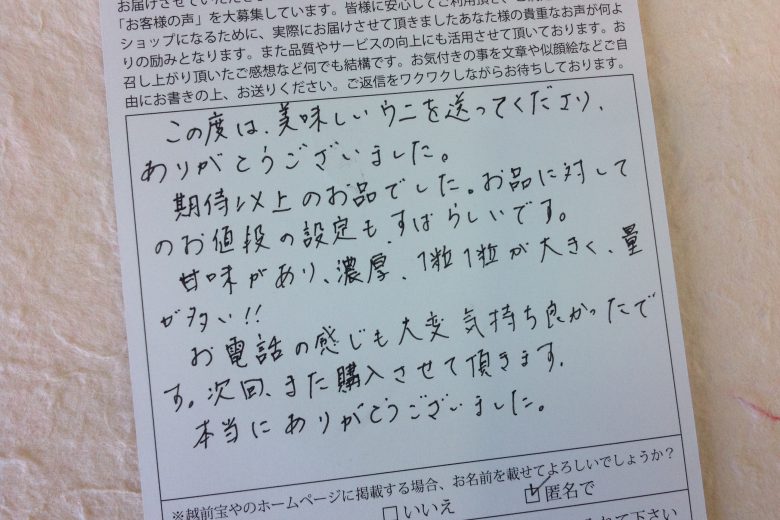 「お客様の声」を大募集しています。皆様に安心してご利用頂き、
ショップになるために、実際にお届けさせて頂きましたあなた様の貴重なお声が何よ
りの励みとなります。また品質やサービスの向上にも活用させて頂いております。お
召し上がり頂いたご感想など何でも結構です。お気付きの事を文章や似顔絵などご自
由にお書きの上、お送りください。ご返信をワクワクしながらお待ちしております。
この度は、美味しいウニを送ってくださり、
ありがとうございました。
期待以上のお品でした。お品に対して
のお値段の設定も、すばらしいです。
甘味があり、濃厚、1粒1粒が大きく、量
が多い!!
お電話の感じも大変気持ち良かったで
す。次回、また購入させて頂きます。
本当にありがとうございました。
※越前宝やのホームページに掲載する場合、お名前を載せてよろしいでしょうか?
□いいえ ☑匿名で